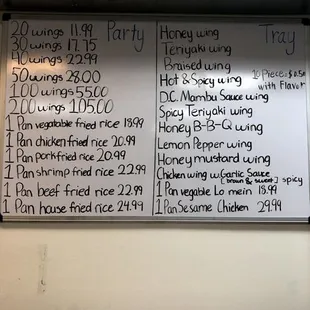 Party
20 wings 11.99
30 wings 17.75
40 wings 22.99
50 wings 28.00
100 wings 55.00
200 wings 105.00
1 Pan vegatable fried rice 18.99
1 Pan chicken fried rice 20.99
1 Pan pork fried rice 20.99
1 Pan shrimp fried rice 22.99
1 Pan beef fried rice 22.99
1 Pan house fried rice 24.99
Tray
Honey wing
Teriyaki wing
Braised wing
Hot & Spicy wing
10 Piece: $0.50
with Flavor
D.C. Mambu Sauce wing
Spicy Teriyaki wing
Honey B-B-Q wing
Lemon Pepper wing
Honey mustard wing
Chicken wing w. Garlic Sauce
[brown & sweet] spicy
1 Pan vegable Lo mein 18.99
1 Pan Sesame Chicken 29.99